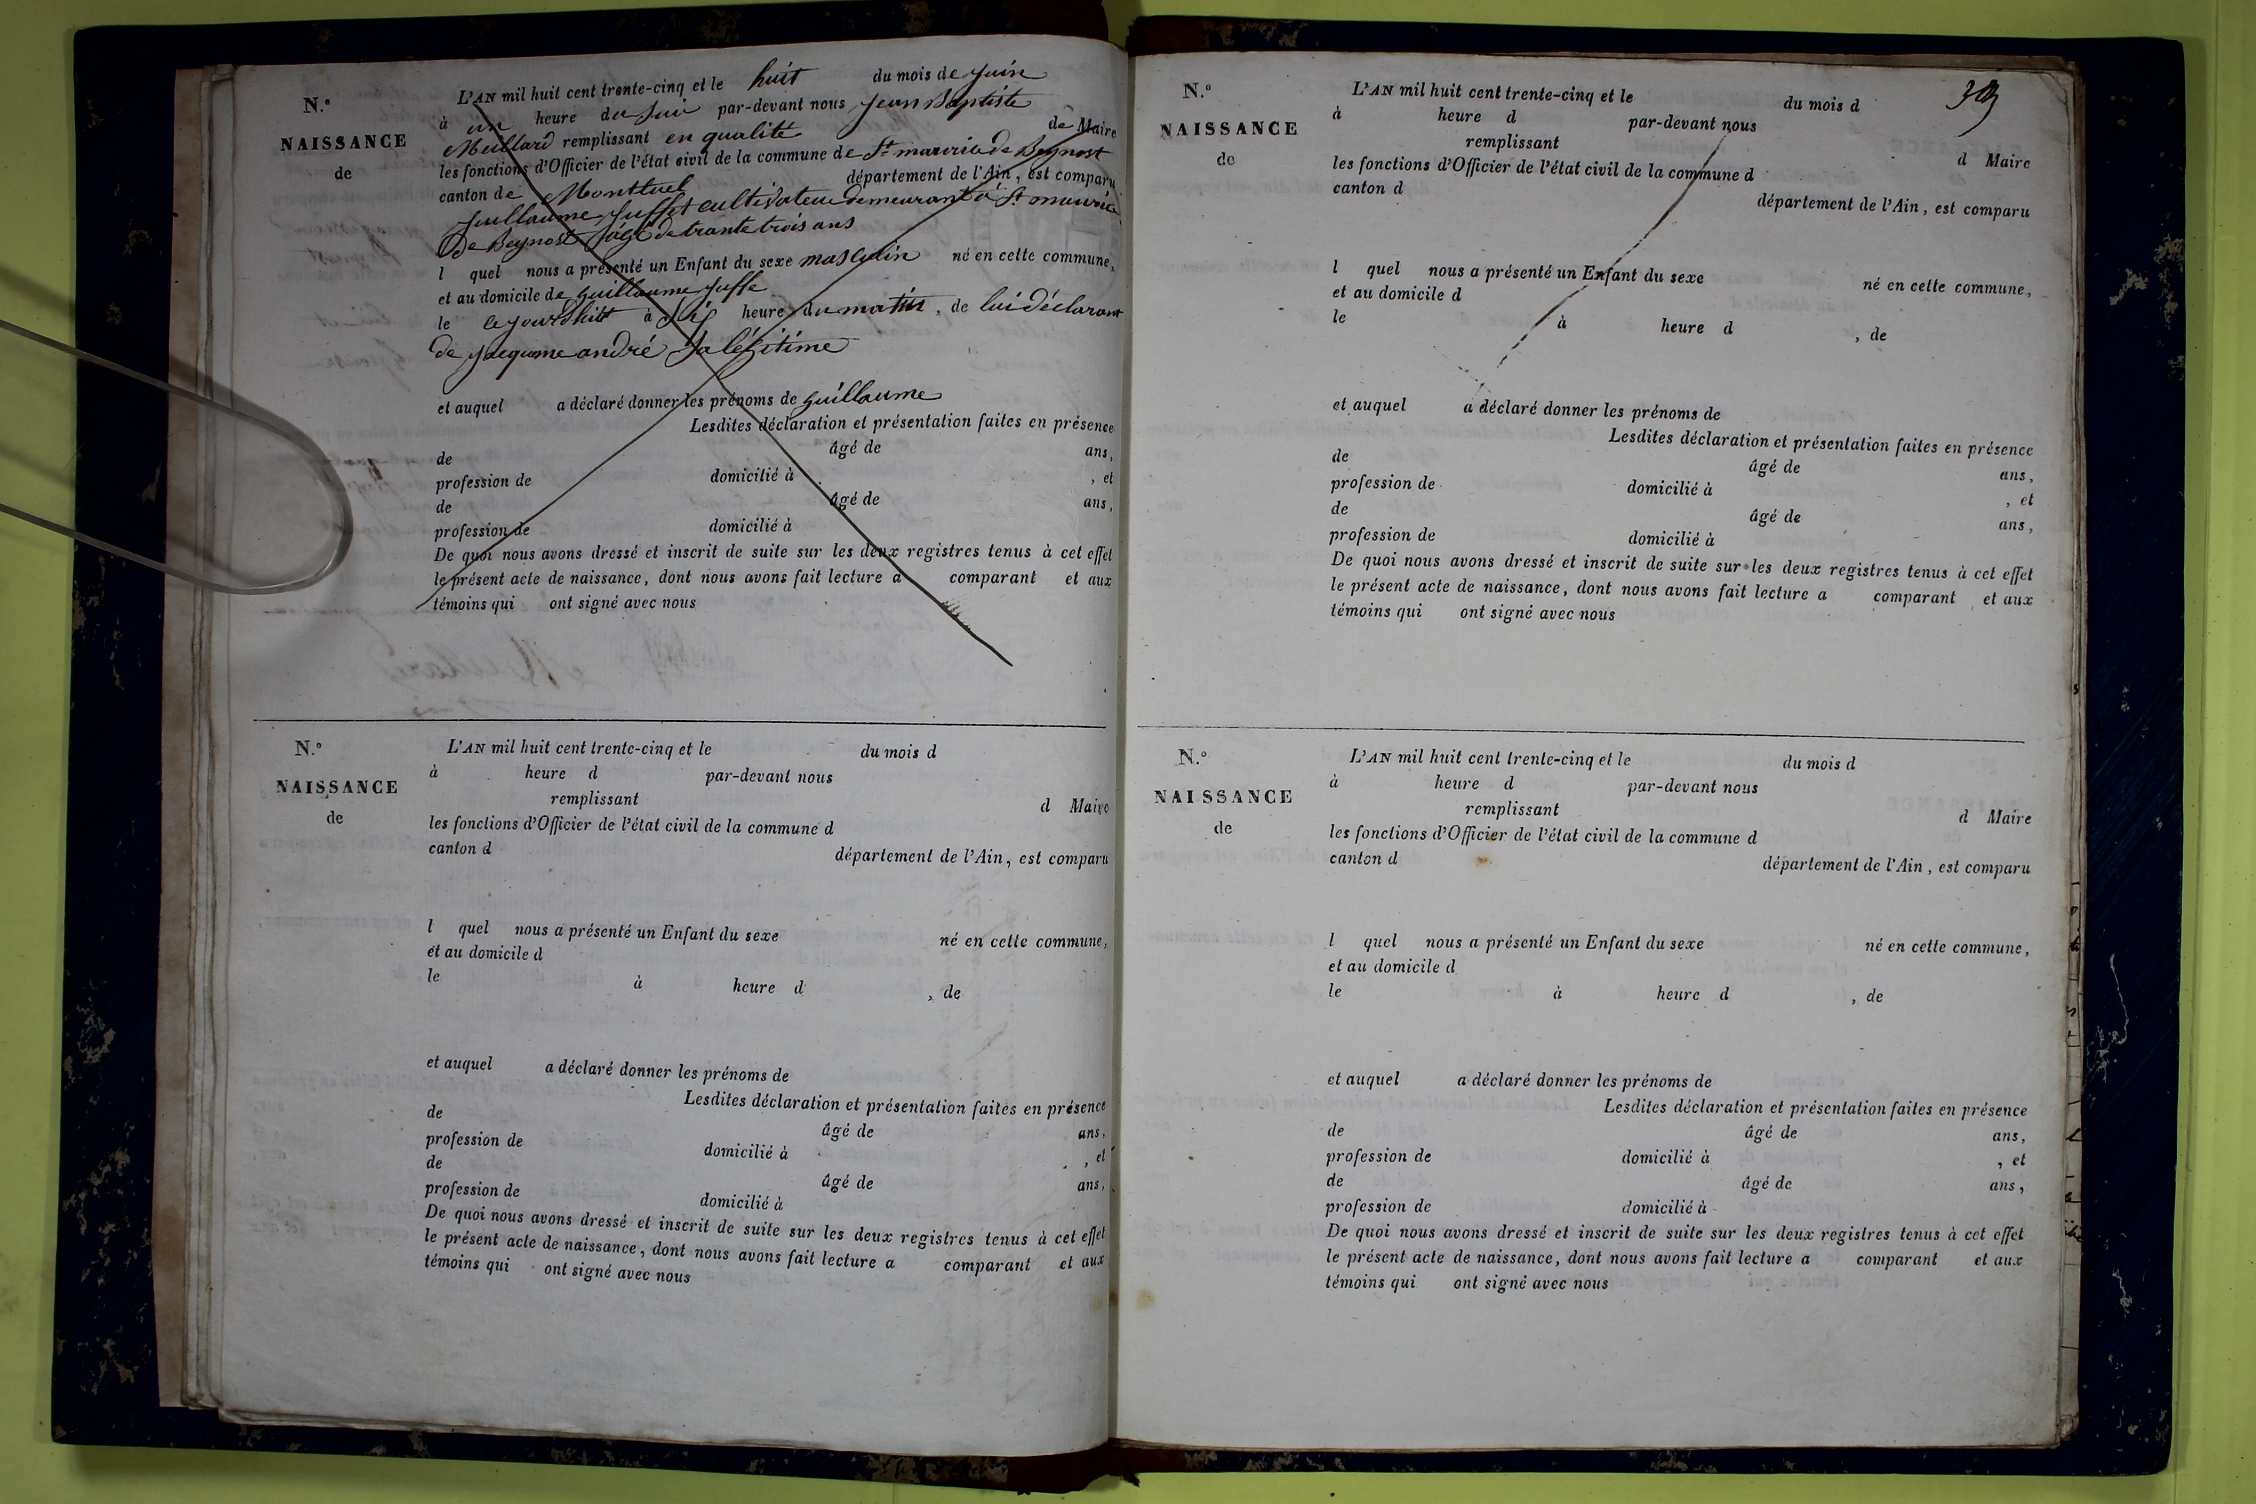 N.°
NAISSANCE
de
L'AN mil huit cent trente-cinq et le huit du mois de juin
à un heure du soir par-devant nous jean Baptiste
Meillard remplissant en qualité de Maire
les fonctions d'Officier de l'état civil de la commune de St maurice de Beynost
canton de Montluel département de l'Ain, est comparu
guillaume juffet cultivateur demeurant à St maurice
de Beynost âgé de trante trois ans
l quel nous a présenté un Enfant du sexe masculin né en cette commune,
et au domicile de guillaume juffe
le ce jourd huit à six heure du matin, de lui déclarant
de jacqueme andré Sa légitime
et auquel a déclaré donner les prénoms de guillaume
Lesdites déclaration et présentation faites en présence
de âgé de ans,
profession de domicilié à , et
de âgé de ans,
profession de domicilié à
De quoi nous avons dressé et inscrit de suite sur les deux registres tenus à cet effet
le présent acte de naissance, dont nous avons fait lecture a comparant et aux
témoins qui ont signé avec nous
N.°
NAISSANCE
de
L'AN mil huit cent trente-cinq et le du mois d
à heure d par-devant nous
remplissant d Maire
les fonctions d'Officier de l'état civil de la commune d
canton d département de l'Ain, est comparu
l quel nous a présenté un Enfant du sexe né en cette commune,
et au domicile d
le à heure d , de
et auquel a déclaré donner les prénoms de
Lesdites déclaration et présentation faites en présence
de âgé de ans,
profession de domicilié à , et
de âgé de ans,
profession de domicilié à
De quoi nous avons dressé et inscrit de suite sur les deux registres tenus à cet effet
le présent acte de naissance, dont nous avons fait lecture a comparant et aux
témoins qui ont signé avec nous
N.°
NAISSANCE
de
L'AN mil huit cent trente-cinq et le du mois d
à heure d par-devant nous
remplissant d Maire
les fonctions d'Officier de l'état civil de la commune d
canton d département de l'Ain, est comparu
l quel nous a présenté un Enfant du sexe né en cette commune,
et au domicile d
le à heure d , de
et auquel a déclaré donner les prénoms de
Lesdites déclaration et présentation faites en présence
de âgé de ans,
profession de domicilié à , et
de âgé de ans,
profession de domicilié à
De quoi nous avons dressé et inscrit de suite sur les deux registres tenus à cet effet
le présent acte de naissance, dont nous avons fait lecture a comparant et aux
témoins qui ont signé avec nous
N.°
NAISSANCE
de
L'AN mil huit cent trente-cinq et le du mois d
à heure d par-devant nous
remplissant d Maire
les fonctions d'Officier de l'état civil de la commune d
canton d département de l'Ain, est comparu
l quel nous a présenté un Enfant du sexe né en cette commune,
et au domicile d
le à heure d , de
et auquel a déclaré donner les prénoms de
Lesdites déclaration et présentation faites en présence
de âgé de ans,
profession de domicilié à , et
de âgé de ans,
profession de domicilié à
De quoi nous avons dressé et inscrit de suite sur les deux registres tenus à cet effet
le présent acte de naissance, dont nous avons fait lecture a comparant et aux
témoins qui ont signé avec nous